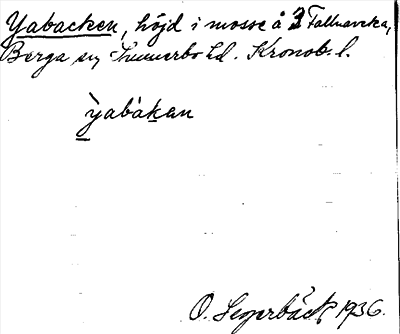 Yabacken, höjd i mosse å 3 Tallnäveka,
Berga sn Sunnerbo hd. Kronob. l.
yabakan
O. Segerbäck 1936.